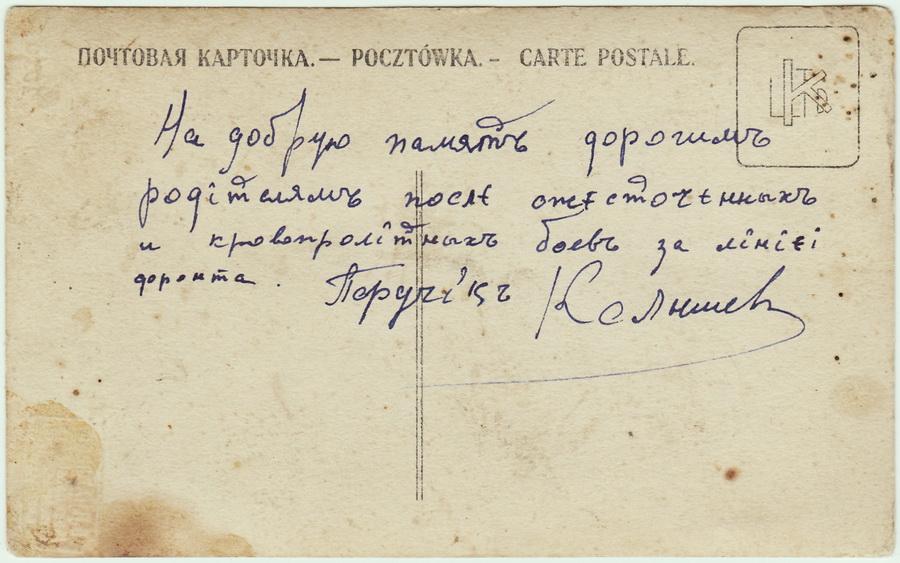 ПОЧТОВАЯ КАРТОЧКА. — POCZTÓWKA. - CARTE POSTALE.
На добрую память дорогимъ
родітелямъ после ожесточенныхъ
и кровопролітныхъ боевъ за лініеі
фронта.